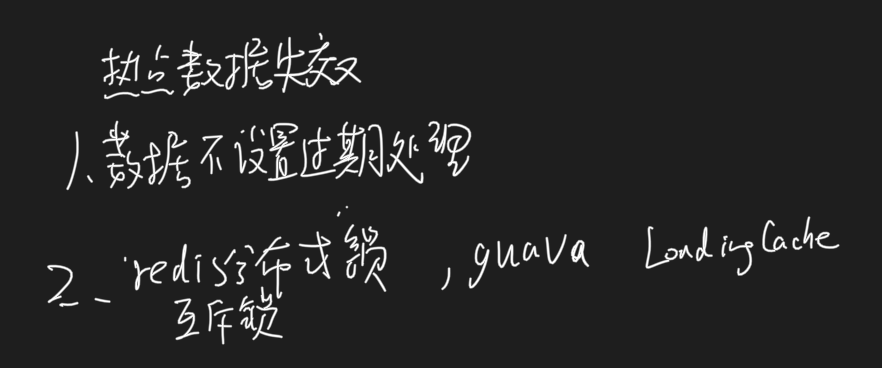 热点数据失效
1、数据不设置过期处理
2、redis分布式锁，guava LoadingCache
互斥锁